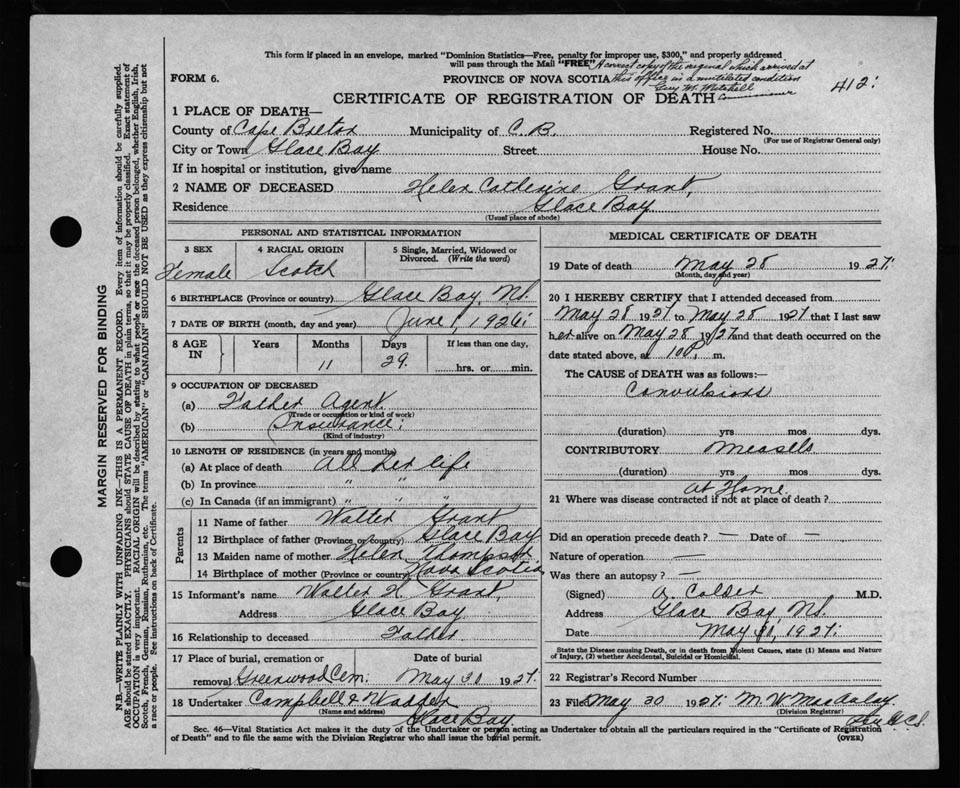 This form if placed in an envelope, marked "Dominion Statistics—Free, penalty for improper use, $300," and properly addressed
will pass through the Mail "FREE" A correct copy of the original which arrived at
FORM 6. PROVINCE OF NOVA SCOTIA this office in a mutilated condition
Guy M. Mitchell
Commissioner
412:
CERTIFICATE OF REGISTRATION OF DEATH
1 PLACE OF DEATH—
County of Cape Breton Municipality of C. B. Registered No.
(For use of Registrar General only)
City or Town Glace Bay Street House No.
If in hospital or institution, give name
2 NAME OF DECEASED Helen Catherine Grant,
Residence Glace Bay
(Usual place of abode)
PERSONAL AND STATISTICAL INFORMATION
3 SEX 4 RACIAL ORIGIN 5 Single, Married, Widowed or
Divorced. (Write the word)
Female Scotch
6 BIRTHPLACE (Province or country) Glace Bay, N.S.
7 DATE OF BIRTH (month, day and year) June 1, 1926:
8 AGE IN Years Months Days If less than one day,
11 29. hrs. or min.
9 OCCUPATION OF DECEASED
(a) Father Agent.
(Trade or occupation or kind of work)
(b) (Insurance:
(Kind of industry)
10 LENGTH OF RESIDENCE (in years and months)
(a) At place of death All her life
(b) In province " " "
(c) In Canada (if an immigrant) " " "
Parents
11 Name of father Walter Grant
12 Birthplace of father (Province or country) Glace Bay
13 Maiden name of mother Helen Thompson
14 Birthplace of mother (Province or country) Nova Scotia
15 Informant's name Walter H. Grant,
Address Glace Bay.
16 Relationship to deceased Father
17 Place of burial, cremation or Date of burial
removal Greenwood Cem: May 30 1927.
18 Undertaker Campbell &
(Name and address) Glace Bay
MEDICAL CERTIFICATE OF DEATH
19 Date of death May 28 1927.
(Month, day and year)
20 I HEREBY CERTIFY that I attended deceased from
May 28 1927 to May 28 1927 that I last saw
her alive on May 28 1927 and that death occurred on the
date stated above, at 100 P. m.
The CAUSE of DEATH was as follows:—
Convulsions
(duration) yrs mos dys.
CONTRIBUTORY Measels
(duration) yrs mos dys.
At Home.
21 Where was disease contracted if not at place of death?
Did an operation precede death? — Date of —
Nature of operation —
Was there an autopsy? —
(Signed) A. Calder M.D.
Address Glace Bay, N.S.
Date May 30, 1927:
State the Disease causing Death, or in death from Violent Causes, state (1) Means and Nature
of Injury, (2) whether Accidental, Suicidal or Homicidal.
22 Registrar's Record Number
23 Filed May 30 1927. M. W.
(Division Registrar)
Sec. 46—Vital Statistics Act makes it the duty of the Undertaker or person acting as Undertaker to obtain all the particulars required in the "Certificate of Registration
of Death" and to file the same with the Division Registrar who shall issue the burial permit. (OVER)
MARGIN RESERVED FOR BINDING
N.B.—WRITE PLAINLY WITH UNFADING INK—THIS IS A PERMANENT RECORD. Every item of information should be carefully supplied.
AGE should be stated EXACTLY. PHYSICIANS should STATE CAUSE OF DEATH in plain terms, so that it may be properly classified. Exact statement of
OCCUPATION is very important. RACIAL ORIGIN will be described by stating to what people or race the deceased person belonged, whether English, Irish,
Scotch, French, German, Russian, Ruthenian, etc. The terms "AMERICAN" or "CANADIAN" SHOULD NOT BE USED as they express citizenship but not
a race or people. See instructions on back of Certificate.